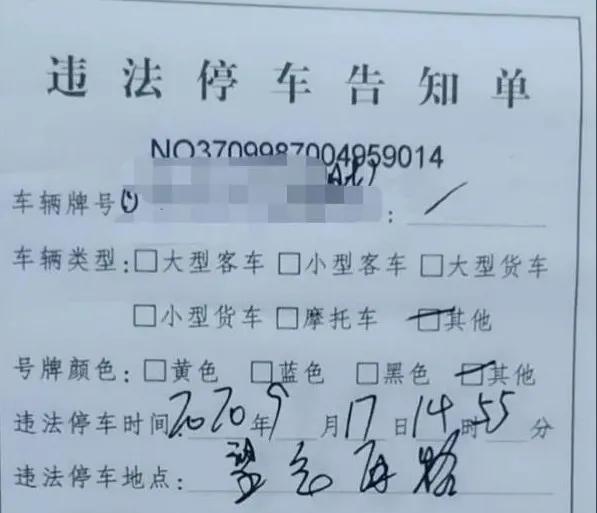 违法停车告知单
NO3709987004959014
车辆牌号 : /
车辆类型:□大型客车 □小型客车 □大型货车
□小型货车 □摩托车 □其他
号牌颜色:□黄色 □蓝色 □黑色 □其他
违法停车时间:2020年9月17日14时55分
违法停车地点: